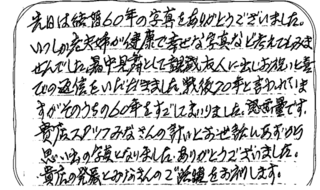 先日は結婚60年の写真をありがとうございました。
いつしか老夫婦が健康で幸せな写真など考えてもみま
せんでした。暑中見舞として親戚友人に出しお祝いと喜
びの返信をいただきました。戦後70年と言われていま
すがそのうちの60年をすごしてまいりました。感無量です。
貴店スタッフみなさんの計いとお世話しあずかり
思い出の写真となりました。ありがとうございました。
貴店の発展とみなさんのご活躍をお祈りします。